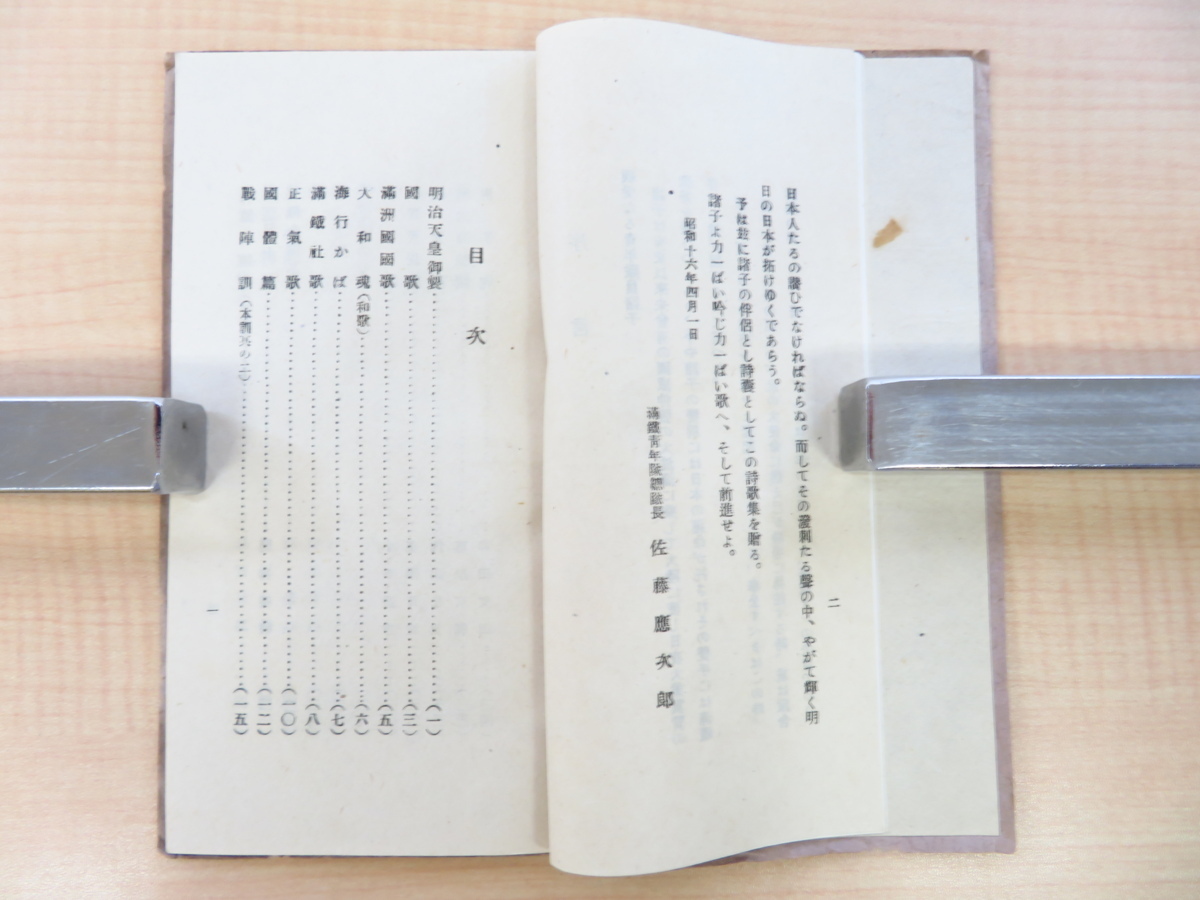 二
日本人たるの讚ひでなければならぬ。而してその溌剌たる聲の中、やがて輝く明
日の日本が拓けゆくであらう。
予は玆に諸子の伴侶とし詩嚢としてこの詩歌集を贈る。
諸子よ力一ぱい吟じ力一ぱい歌へ、そして前進せよ。
昭和十六年四月一日
滿鐵靑年隊總隊長 佐藤應次郎
目次
明治天皇御製……(一)
國歌……(三)
滿洲國國歌……(五)
大和魂(和歌)……(六)
海行かば……(七)
滿鐵社歌……(八)
正氣歌……(一〇)
國體篇……(一二)
戰陣訓(本訓其の二)……(一五)
一